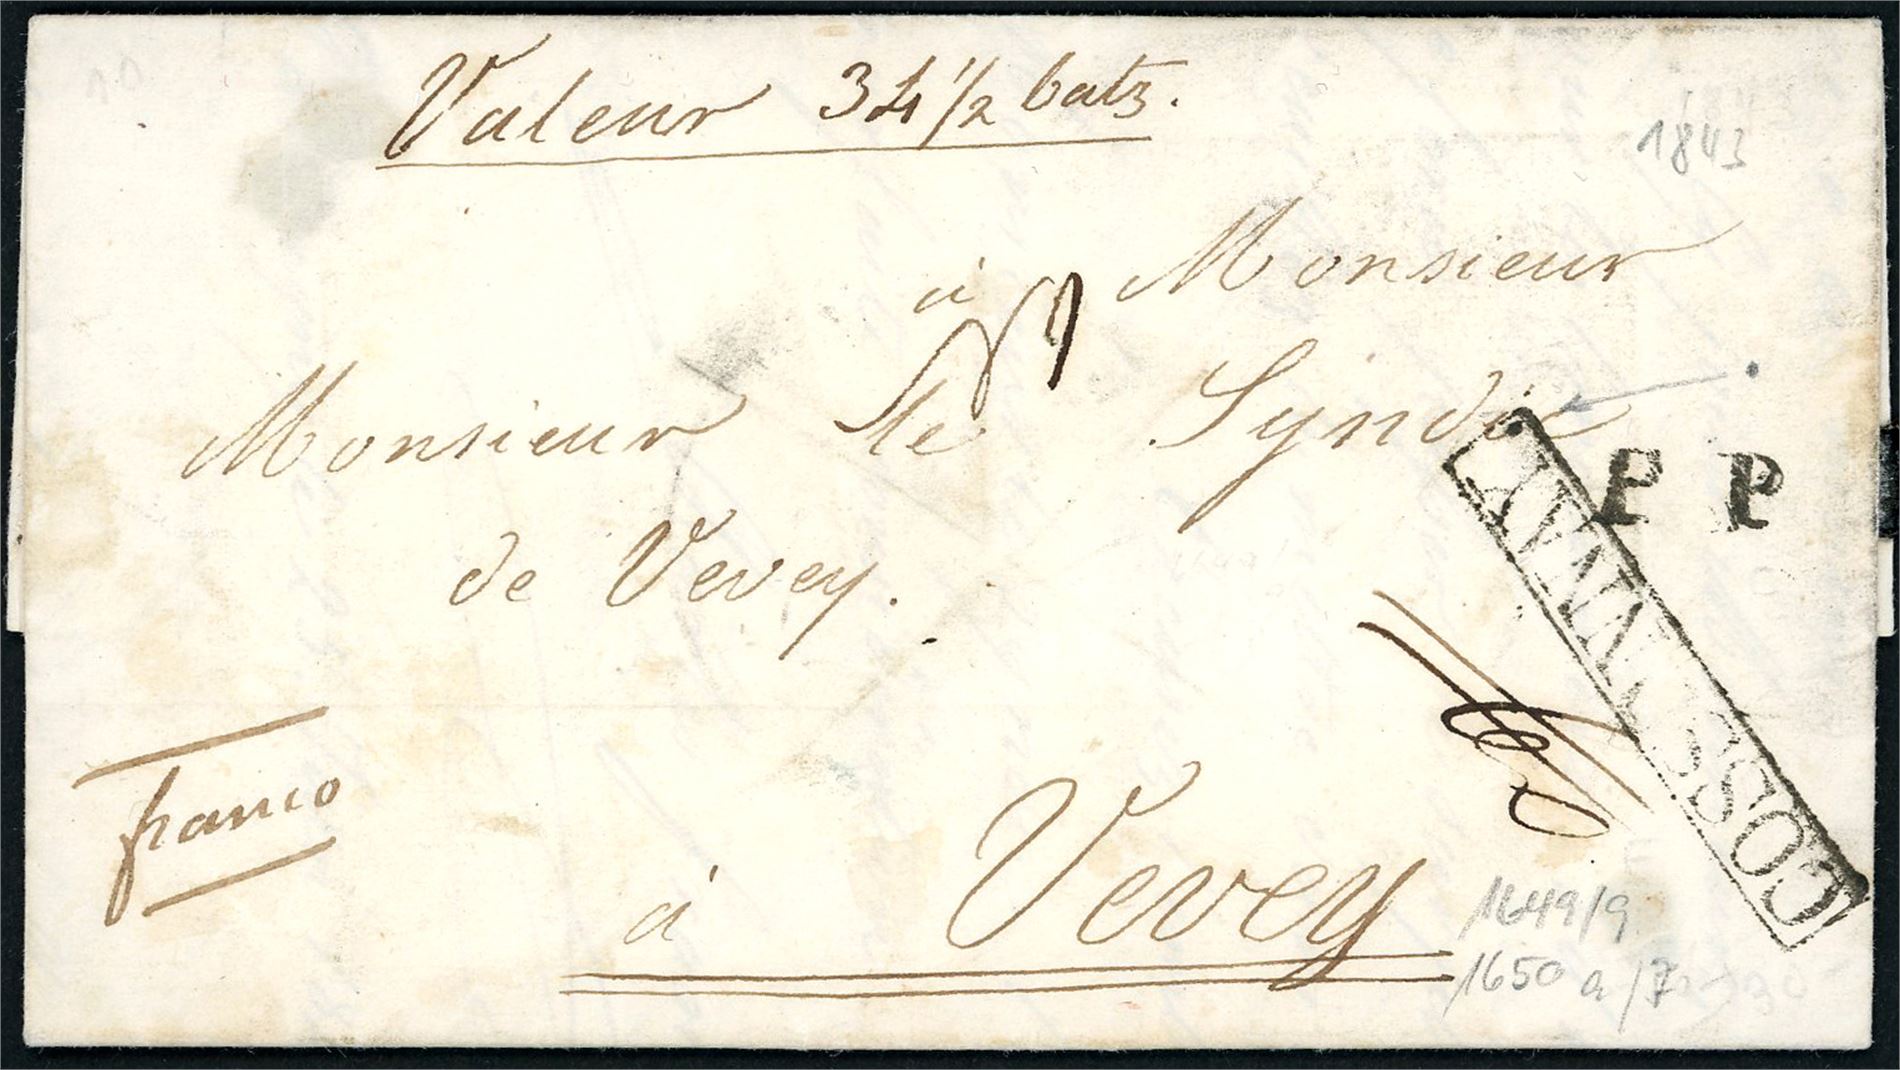 Valeur 34 1/2 batz.
1843
à Monsieur
Monsieur le Syndic
P P
de Vevey.
COSSONNAY
franco
à Vevey
1649/9
1650 a/7